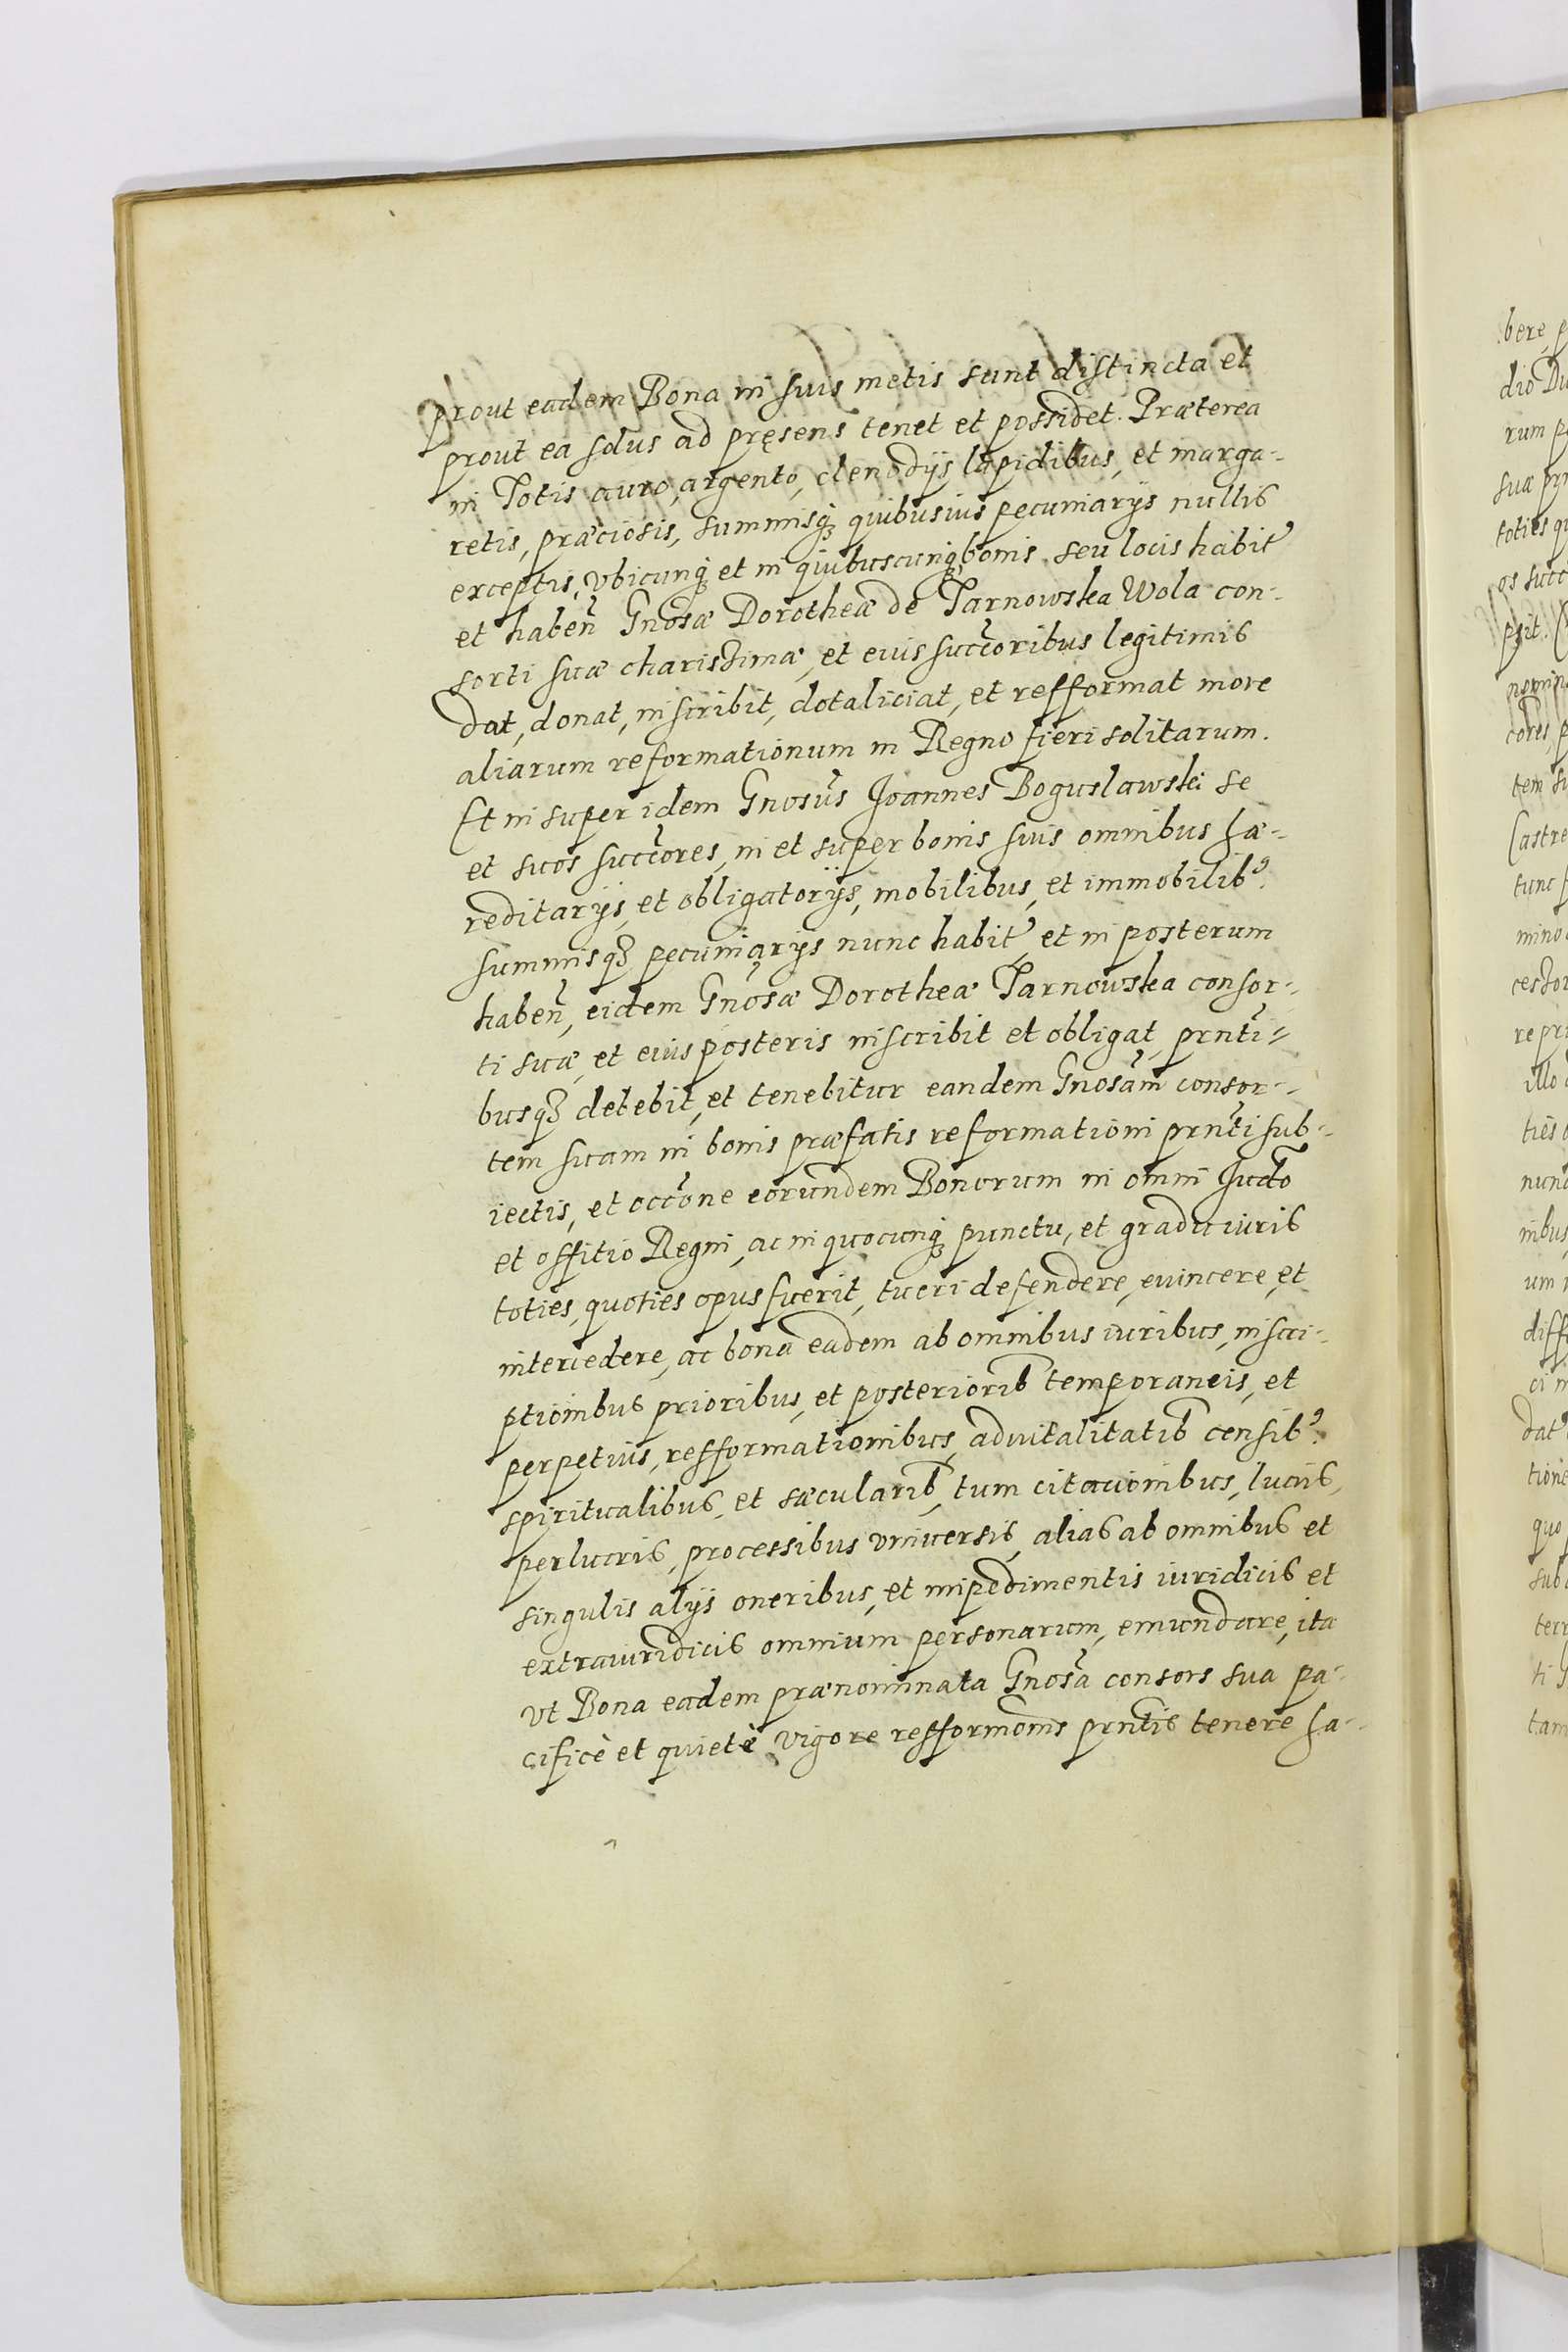 prout eadem Bona in suis metis sunt distincta et
prout ea solus ad pręsens tenet et possidet. Præterea
in Totis auro, argento, clenodijs lapidibus, et marga-
retis, præciosis, summisq́ꝫ quibusuis pecuniarijs nullis
exceptis, vbicunq́ꝫ et in quibuscunq́ꝫ bonis seu locis habit᷒
et haben̄ Gnosæ Dorotheæ de Tarnowska Wola con-
sorti suæ charissimæ, et eius succ̄oribus legitimis
dat, donat, inscribit, dotaliciat, et refformat more
aliarum reformationum in Regno fieri solitarum.
Et insuper idem Gnosūs Joannes Boguslawski se
et suos succ̄ores, in et super bonis suis omnibus hæ-
reditarijs, et obligatorijs, mobilibus, et immobilib᷒.
summisqꝫ pecuniarijs nunc habit᷒, et in posterum
haben̄, eidem Gnosæ Dorotheæ Tarnowska consor-
ti suæ, et eius posteris inscribit et obligat, prn̄ti-
busqꝫ debebit, et tenebitur eandem Gnosām consor-
tem suam in bonis præfatis reformationi prn̄ti sub-
iectis, et occ̄one eorundem Bonorum in omni Jud̄o
et offitio Regni, ac in quocunq́ꝫ punctu, et gradu iuris
toties, quoties opus fuerit, tueri defendere, euincere, et
intercedere, ac bona eadem ab omnibus iuribus, inscri-
ptionibus prioribus, et posteriorib̄ temporaneis, et
perpetuis, refformationibus, aduitalitatib̄ censib᷒.
spiritualibus, et sæcularib̄, tum citacionibus, lucris,
perlucris, processibus vniuersis, alias ab omnibus et
singulis alijs oneribus, et impedimentis iuridicis et
extraiuridicis omnium personarum, emundare, ita
vt Bona eadem prænominata Gnosā consors sua pa-
cificè et quietè vigore refformōnis prn̄tis tenere ha-